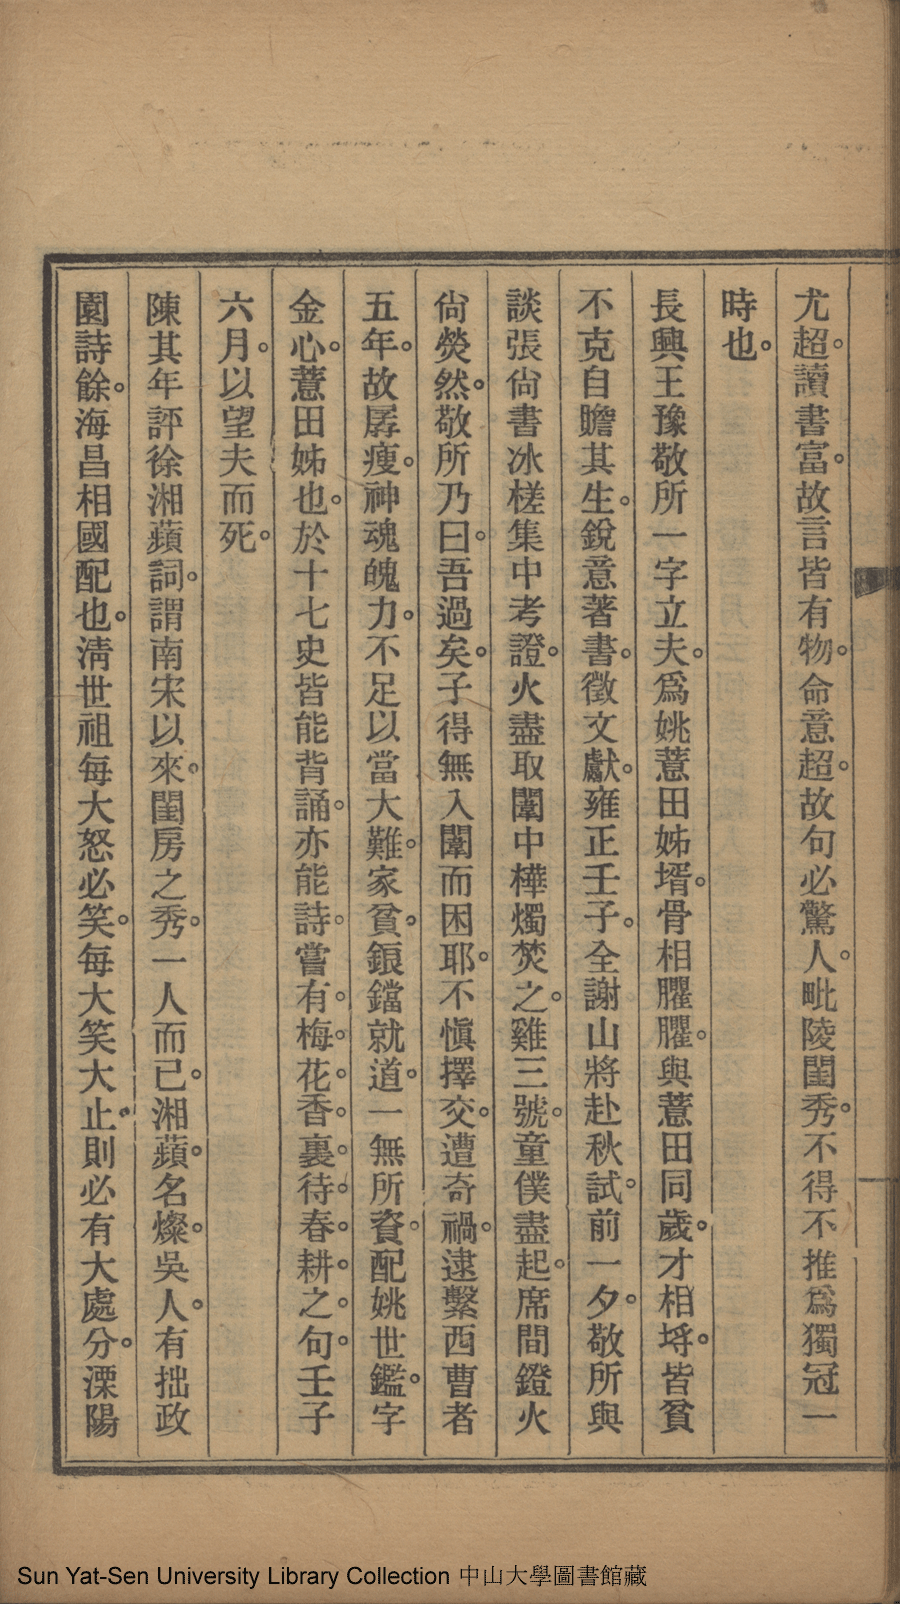 尤超。讀書富。故言皆有物。命意超。故句必驚人。毗陵閨秀。不得不推爲獨冠一
時也。
長興王豫敬所一字立夫。爲姚薏田姊壻。骨相臞臞。與薏田同歲。才相埓。皆貧
不克自贍其生。銳意著書。徵文獻。雍正壬子。全謝山將赴秋試。前一夕。敬所與
談張尙書冰槎集中考證。火盡取闈中樺燭焚之。雞三號。童僕盡起。席間鐙火
尙熒然。敬所乃曰。吾過矣。子得無入闈而困耶。不愼擇交。遭奇禍。逮繫西曹者
五年。故孱瘦。神魂魄力。不足以當大難。家貧。鋃鐺就道。一無所資。配姚世鑑。字
金心。薏田姊也。於十七史皆能背誦。亦能詩。嘗有。梅。花。香。裏。待。春。耕。之。句。壬子
六月。以望夫而死。
陳其年評徐湘蘋詞。謂南宋以來。閨房之秀。一人而已。湘蘋。名燦。吳人。有拙政
園詩餘。海昌相國配也。淸世祖每大怒必笑。每大笑大止。則必有大處分。溧陽
Sun Yat-Sen University Library Collection 中山大學圖書館藏